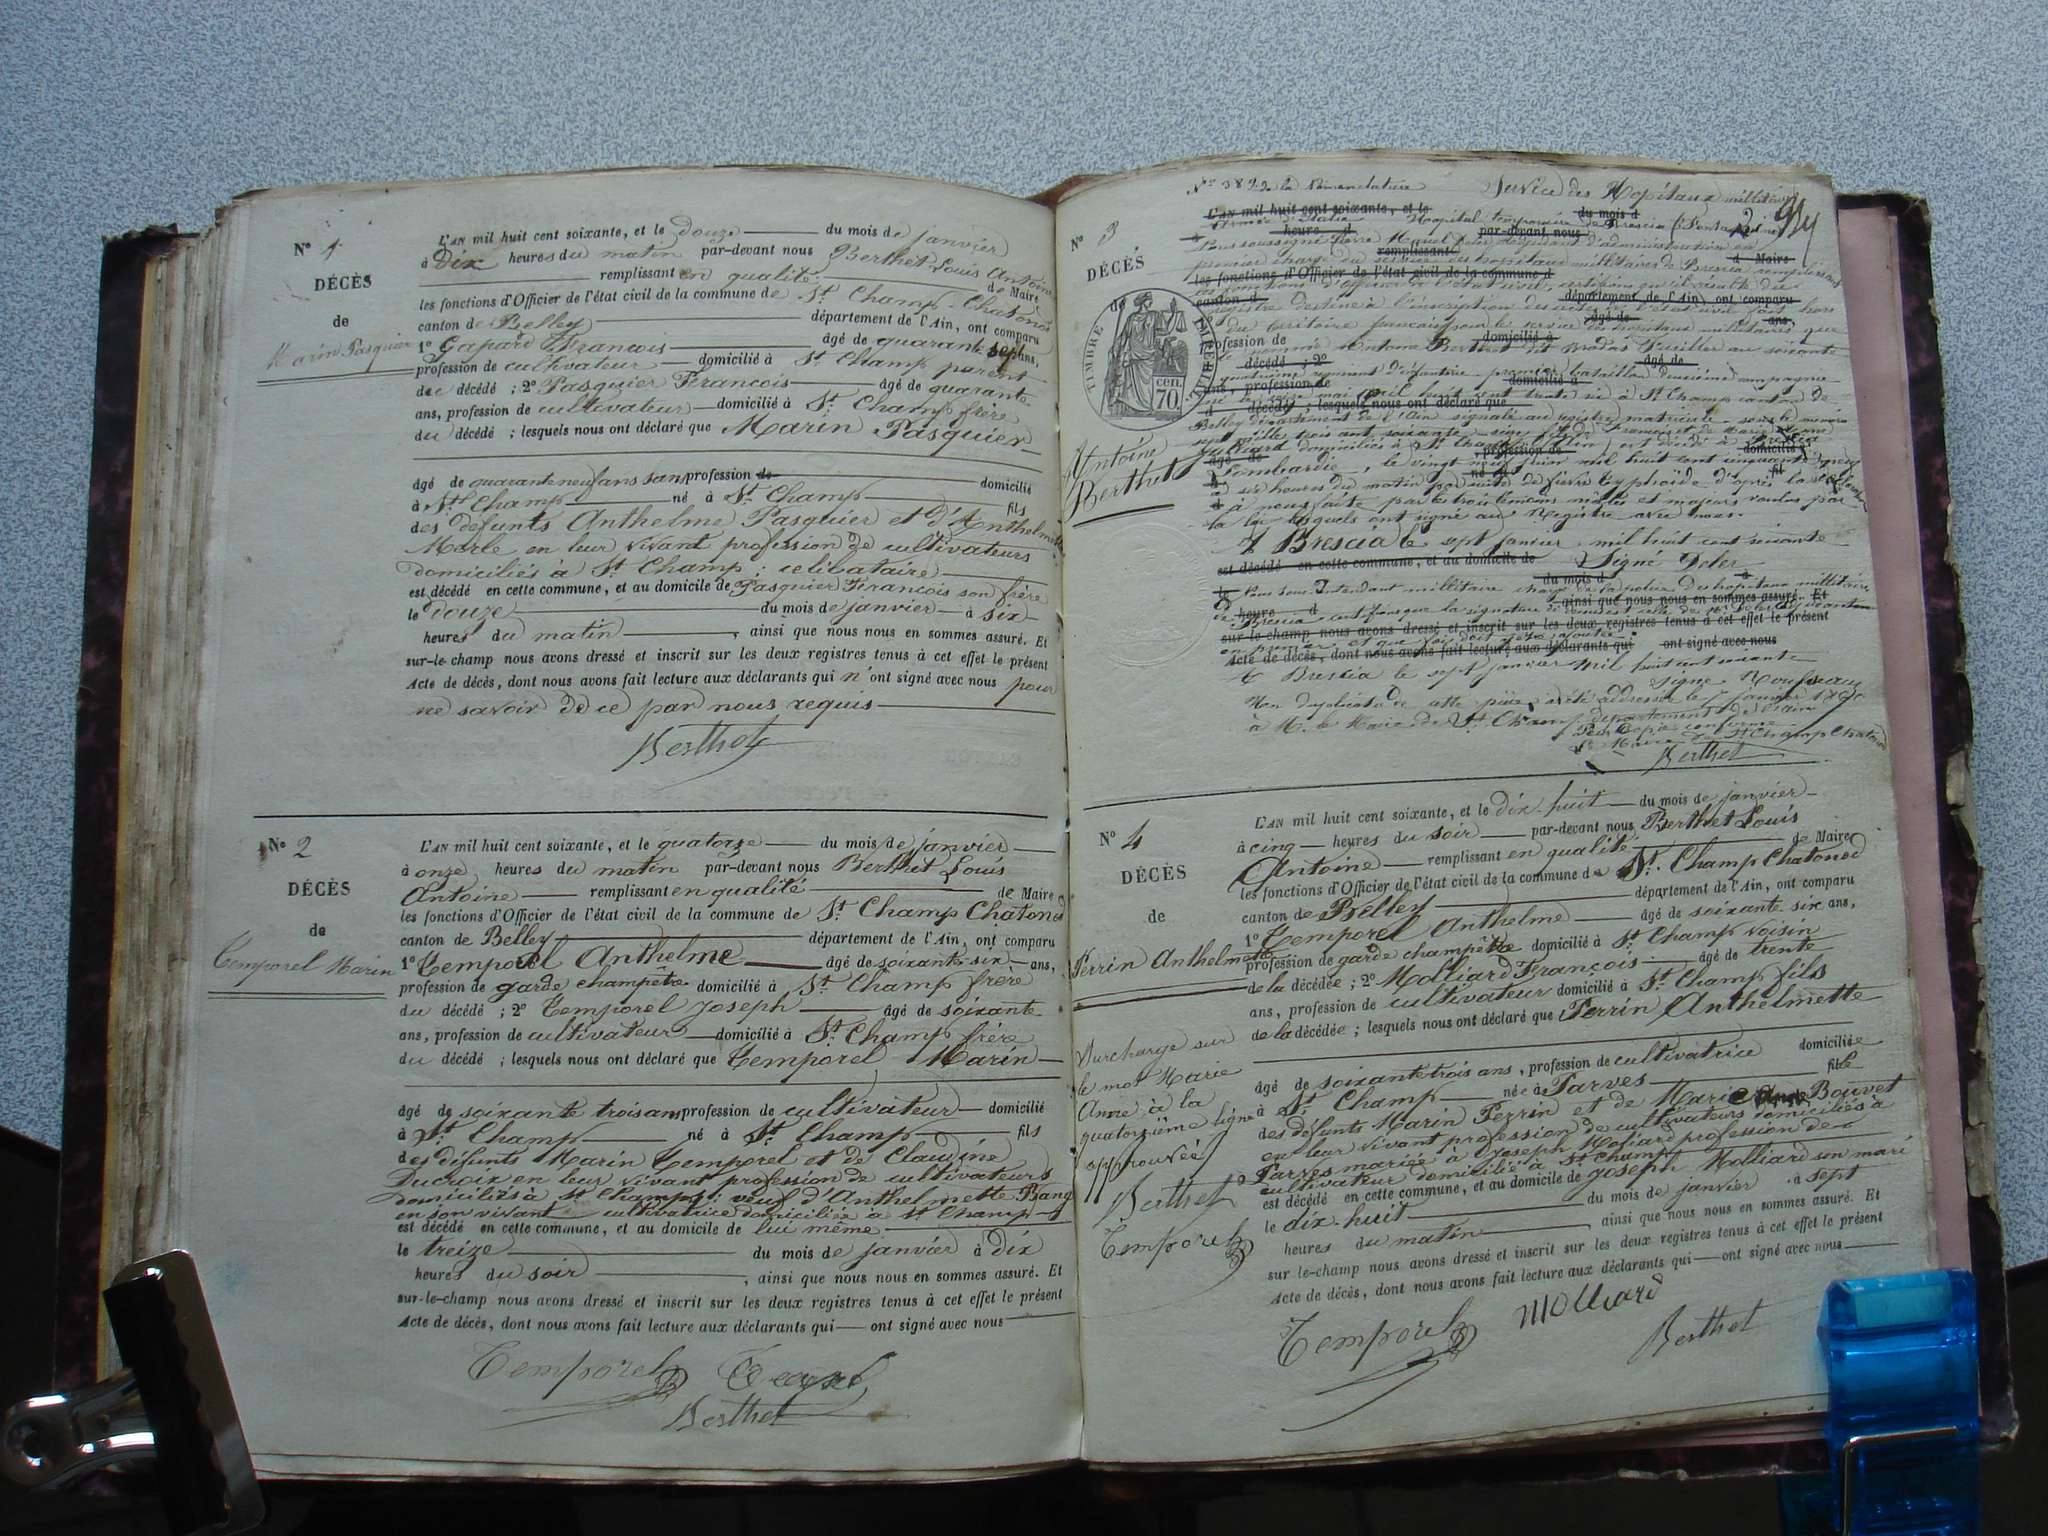 N° 1
DÉCÈS
de
Marin Pasquier
L'AN mil huit cent soixante, et le douze du mois de janvier
à Dix heures du matin par-devant nous Berthet Louis Antoine
remplissant en qualité de Maire
les fonctions d'Officier de l'état civil de la commune de St Champ-Chatonod
canton de Belley département de l'Ain, ont comparu
1° Gapard François âgé de quarante sept ans,
profession de cultivateur domicilié à St Champ parent
du décédé ; 2° Pasquier François âgé de quarante
ans, profession de cultivateur domicilié à St Champ frère
du décédé ; lesquels nous ont déclaré que Marin Pasquier
âgé de quarante neuf ans sans profession de domicilié
à St Champ né à St Champ fils
des défunts Anthelme Pasquier et d'Anthelmette
Marle en leur vivant profession de cultivateurs
domiciliés à St Champ ; celibataire
est décédé en cette commune, et au domicile de Pasquier François son frère
le douze du mois de janvier à six
heures du matin , ainsi que nous nous en sommes assuré. Et
sur-le-champ nous avons dressé et inscrit sur les deux registres tenus à cet effet le présent
Acte de décès, dont nous avons fait lecture aux déclarants qui n'ont signé avec nous pour
ne savoir de ce par nous requis
Berthet
N° 2
DÉCÈS
de
Temporel Marin
L'AN mil huit cent soixante, et le quatorze du mois de janvier
à onze heures du matin par-devant nous Berthet Louis
Antoine remplissant en qualité de Maire
les fonctions d'Officier de l'état civil de la commune de St Champ Chatonod
canton de Belley département de l'Ain, ont comparu
1° Temporel Anthelme âgé de soixante six ans,
profession de garde champêtre domicilié à St Champ frère
du décédé ; 2° Temporel Joseph âgé de soixante
ans, profession de cultivateur domicilié à St Champ frère
du décédé ; lesquels nous ont déclaré que Temporel Marin
âgé de soixante trois ans profession de cultivateur domicilié
à St Champ né à St Champ fils
des défunts Marin Temporel et de Claudine
Ducroix en leur vivant profession de cultivateurs
domiciliés à St Champ ; veuf d'Anthelmette Bang
en son vivant cultivatrice domiciliée à St Champ
est décédé en cette commune, et au domicile de lui même
le treize du mois de janvier à dix
heures du soir , ainsi que nous nous en sommes assuré. Et
sur-le-champ nous avons dressé et inscrit sur les deux registres tenus à cet effet le présent
Acte de décès, dont nous avons fait lecture aux déclarants qui ont signé avec nous
Temporel
Berthet
N° 3
DÉCÈS
de
TIMBRE
70 cen.
Antoine
Berthet
de la Nomenclature Service des Hopitaux militaires
L'AN mil huit cent soixante, et le du mois d
Hopital temporaire de Brescia
heure d par-devant nous
remplissant
d Maire
premier chargé du service des hopitaux militaires de Brescia remplissant
les fonctions d'Officier de l'état civil de la commune d
canton d département de l'Ain, ont comparu
registre destiné à l'inscription des actes de l'état civil faits hors
âgé de ans,
du territoire francais pour le service des hopitaux militaires que
profession de domicilié à
Antoine Berthet dit fusilier au soixante
décédé ; 2° âgé de
quatorzième régiment d'infanterie premier bataillon deuxième compagnie
ans, profession de domicilié à
mai mil huit cent trente né à St Champ canton de
d décédé ; lesquels nous ont déclaré que
Belley département de l'Ain signalé au registre matricule sous le numéro
sept mille trois cent soixante
domiciliés à St Champ (Ain) est décédé à Brescia
âgé de profession de domicilié
Lombardie, le vingt mil huit cent cinquante neuf
à six heures du matin par suite de fièvre typhoïde d'après la
à nous faite par les trois témoins mâles et majeurs voulus par
la loi lesquels ont signé au Registre avec nous.
A Brescia le sept janvier mil huit cent soixante
est décédé en cette commune, et au domicile de
Signé Peter
du mois d
Sous Intendant militaire chargé de la police des hopitaux militaires
heure d ainsi que nous nous en sommes assuré. Et
de Brescia certifions que la signature
sur-le-champ nous avons dressé et inscrit sur les deux registres tenus à cet effet le présent
et que foi doit y être ajoutée
Acte de décès, dont nous avons fait lecture aux déclarants qui ont signé avec nous
A Brescia le sept janvier mil huit cent soixante
Signé
Un duplicata de cette pièce a été adressé le 7 janvier 1860
à M. le Maire de St Champ département de l'Ain
Pour Copie conforme
Le Maire de St Champ Chatonod
Berthet
N° 4
DÉCÈS
de
Perrin Anthelmette
Surcharge sur
le mot Marie
Anne à la
quatorzième ligne
approuvée
Berthet
Temporel
L'AN mil huit cent soixante, et le dix huit du mois de janvier
à cinq heures du soir par-devant nous Berthet Louis
Antoine remplissant en qualité de Maire
les fonctions d'Officier de l'état civil de la commune de St Champ Chatonod
canton de Belley département de l'Ain, ont comparu
1° Temporel Anthelme âgé de soixante six ans,
profession de garde champêtre domicilié à St Champ voisin
de la décédée ; 2° Molliard François âgé de trente
ans, profession de cultivateur domicilié à St Champ fils
de la décédée ; lesquels nous ont déclaré que Perrin Anthelmette
âgé de soixante trois ans, profession de cultivatrice domiciliée
à St Champ née à Parves fille
des défunts Marin Perrin et de Marie Anne Bouvet
en leur vivant profession de cultivateurs domiciliés à
Parves mariée à Joseph Moliard profession de
cultivateur domicilié à St Champ
est décédé en cette commune, et au domicile de Joseph Molliard son mari
le dix-huit du mois de janvier à sept
heures du matin , ainsi que nous nous en sommes assuré. Et
sur le-champ nous avons dressé et inscrit sur les deux registres tenus à cet effet le présent
Acte de décès, dont nous avons fait lecture aux déclarants qui ont signé avec nous
Temporel Molliard
Berthet